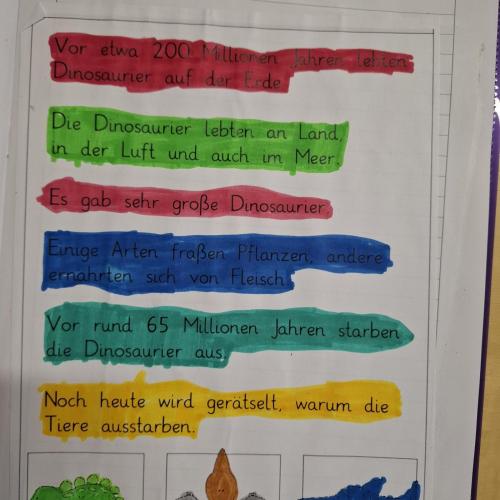 Vor etwa 200 Millionen Jahren lebten
Dinosaurier auf der Erde.
Die Dinosaurier lebten an Land,
in der Luft und auch im Meer.
Es gab sehr große Dinosaurier.
Einige Arten fraßen Pflanzen, andere
ernährten sich von Fleisch.
Vor rund 65 Millionen Jahren starben
die Dinosaurier aus.
Noch heute wird gerätselt, warum die
Tiere ausstarben.